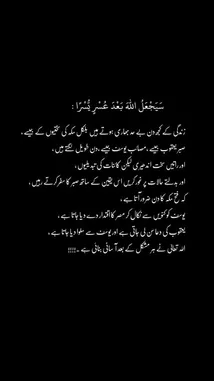 سَيَجْعَلُ اللّٰهُ بَعْدَ عُسْرٍ يُّسْرًا :
زندگی کے کچھ دن بے حد بھاری ہوتے ہیں بلکل مکہ کی سختیوں کے جیسے ،
صبرِ یعقوب جیسے ، مصائب یوسف جیسے ، دن طویل لگتے ہیں ،
اور راتیں سخت اندھیری لیکن کائنات کی تبدیلیاں ،
اور بدلتے حالات پر غور کریں اس یقین کے ساتھ صبر کا سفر کرتے رہیں ،
کہ فتح مکہ کا دن ضرور آتا ہے ،
یوسف کو کنویں سے نکال کر مصر کا اقتدار دے دیا جاتا ہے ،
یعقوب کی دعا سن لی جاتی ہے اور یوسف سے ملوا دیا جاتا ہے ،
اللہ تعالیٰ نے ہر مشکل کے بعد آسانی بنائی ہے ۔!!!!